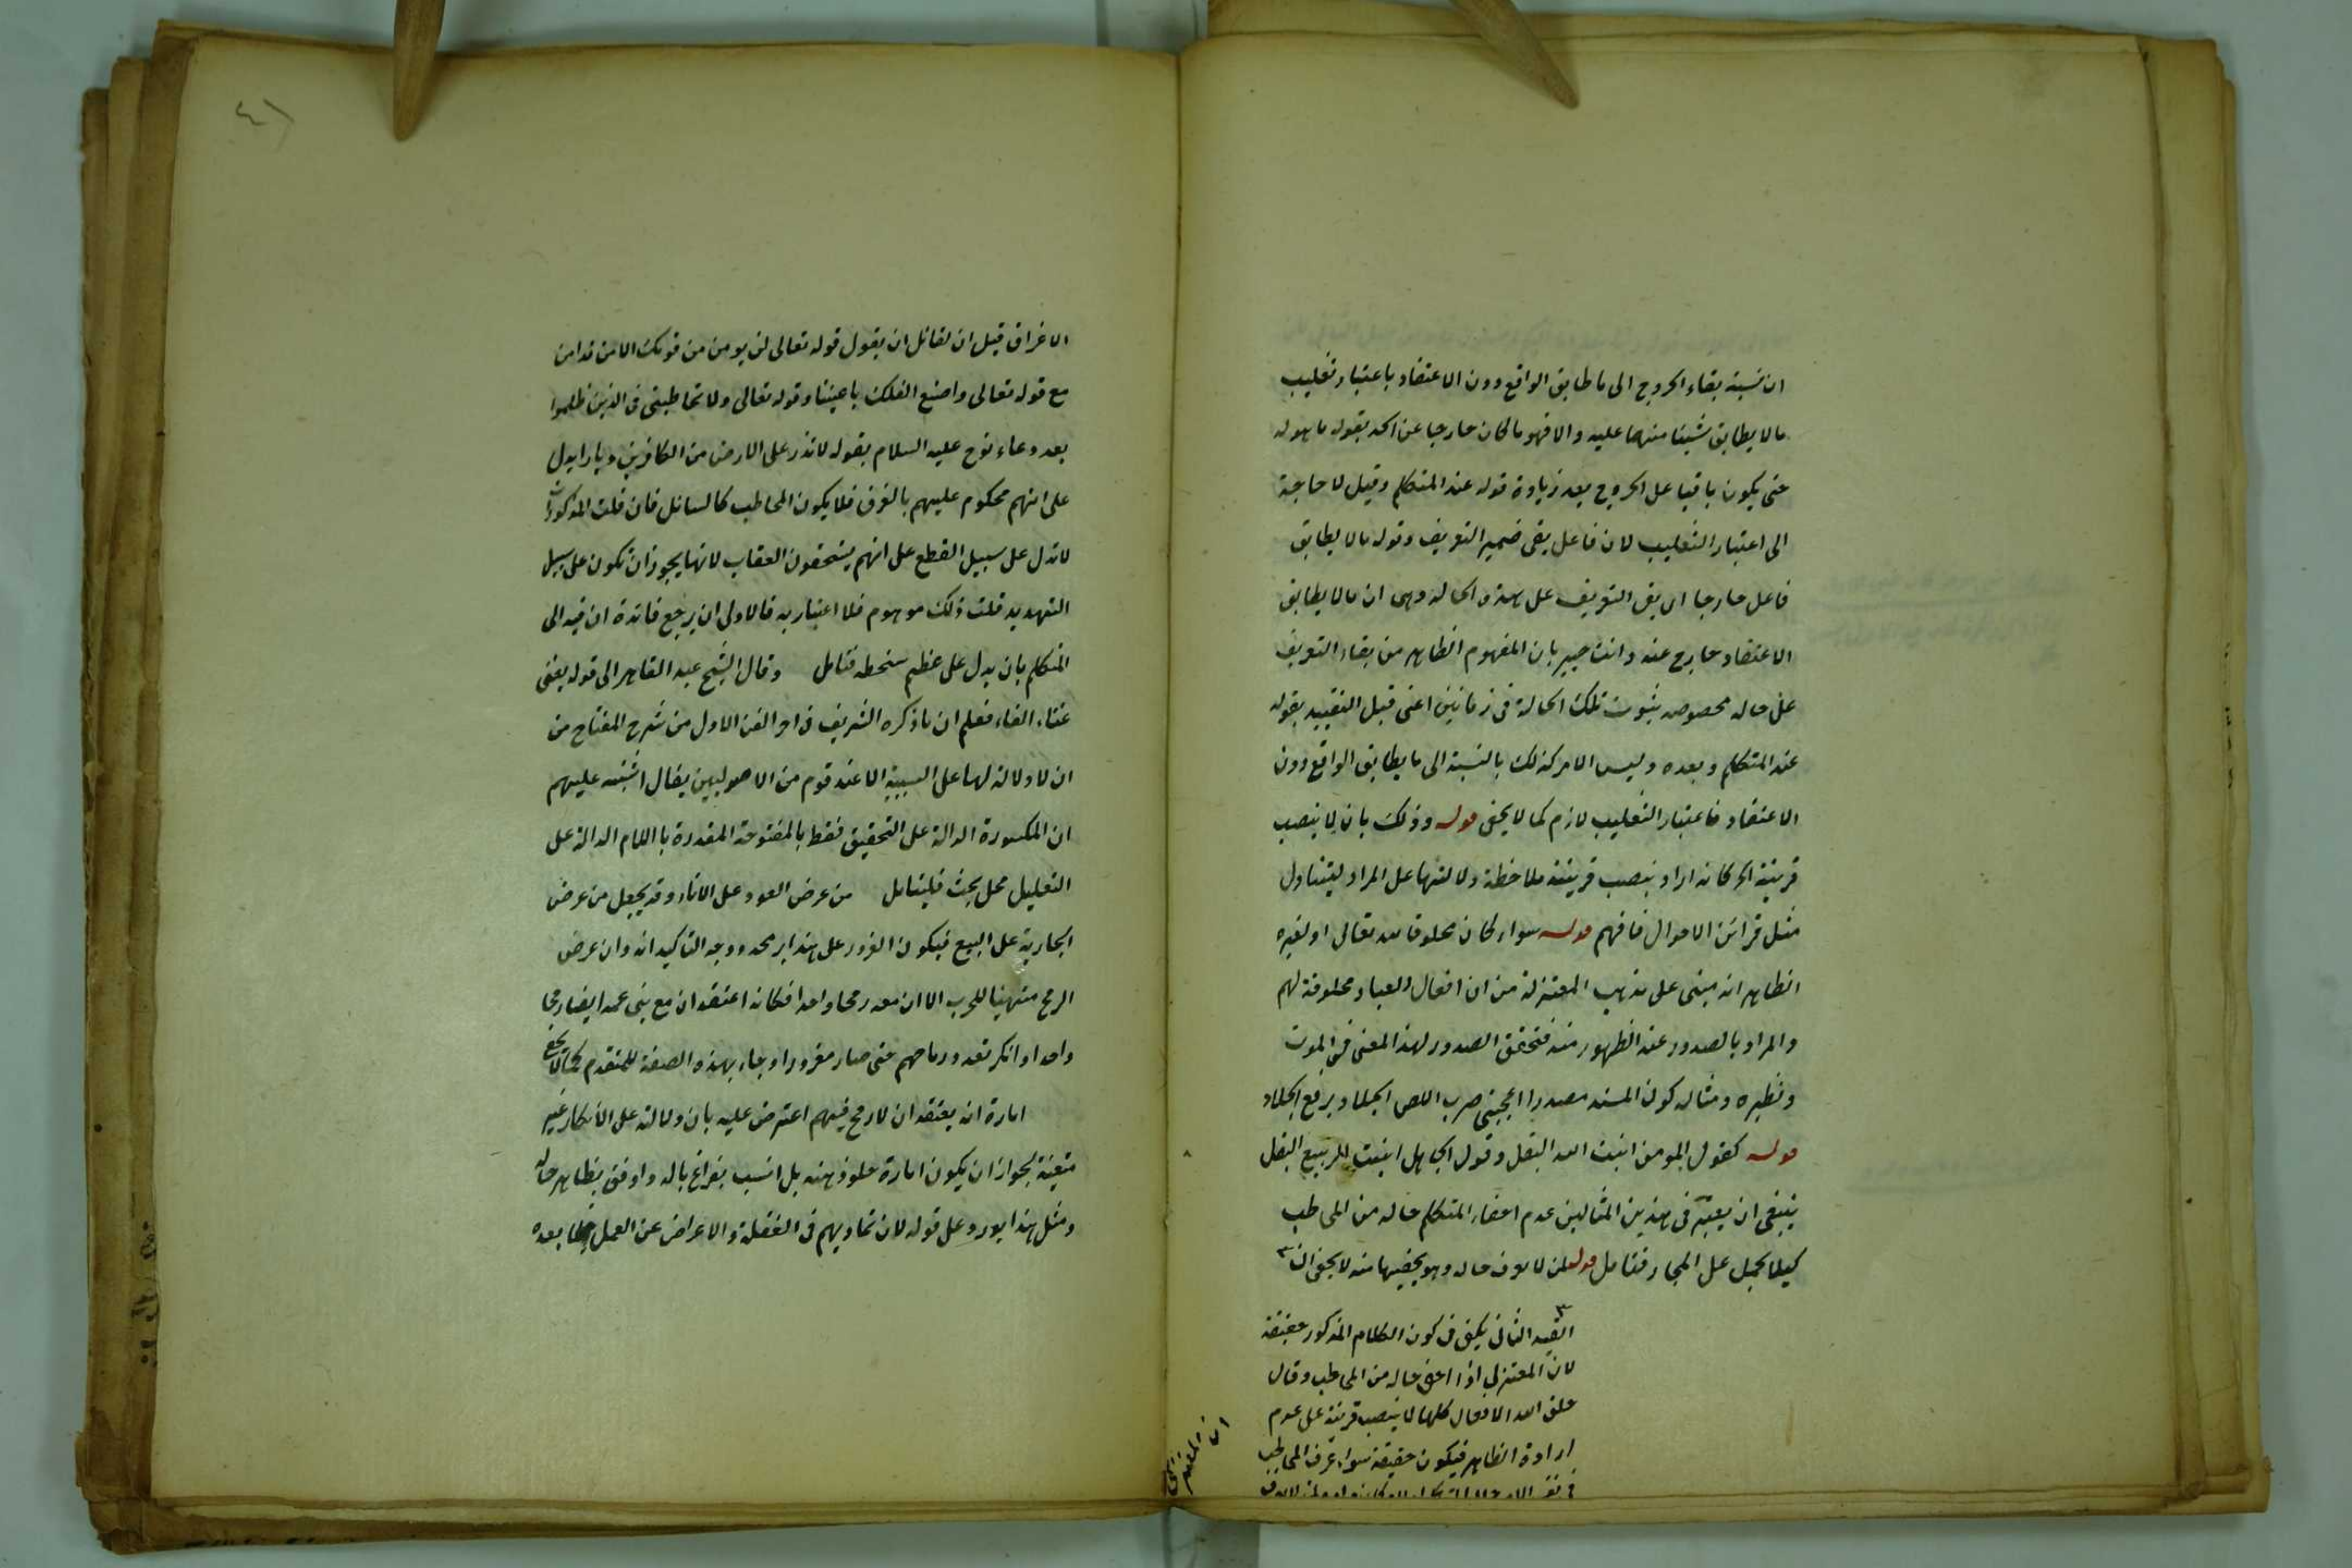 ان نسبة بقاء الخروج الى ما طابق الواقع دون الاعتقاد باعتبار تغليب
ما لا يطابق شيئا منهما عليه والا فهو ما كان خارجا عن الحد بقوله ما هو له
حتى يكون باقيا على الخروج بعد زيادة قوله عند المتكلم وقيل لا حاجة
الى اعتبار التغليب لان فاعل بقى ضمير التعريف وقوله ما لا يطابق
فاعل خارجا اى بقى التعريف على هذه الحالة وهى ان ما لا يطابق
الاعتقاد خارج عنه وانت خبير بان المفهوم الظاهر من بقاء التعريف
على حاله مخصوصه ثبوت تلك الحالة فى زمانين اعنى قبل التقييد بقوله
عند المتكلم وبعده وليس الامر كذلك بالنسبة الى ما يطابق الواقع دون
الاعتقاد فاعتبار التغليب لازم كما لا يخفى قوله وذلك بان لا ينصب
قرينة الخ كانه اراد بنصب قرينة ملاحظة دلالتها على المراد ليتناول
مثل قرائن الاحوال فافهم قوله سواء كان مخلوقا لله تعالى او لغيره
الظاهر انه مبنى على مذهب المعتزلة من ان افعال العباد مخلوقة لهم
والمراد بالصدور عنه الظهور منه فتحقق الصدور لهذا المعنى فى الموت
ونظيره ومثاله كون المسند مصدرا اعجبنى ضرب اللص الجلاد برفع الجلاد
قوله كقول المومن انبت الله البقل وقول الجاهل انبت الربيع البقل
ينبغى ان يعتبر فى هذين المثالين عدم اخفاء المتكلم حاله من المخاطب
كيلا يحمل على المجاز فتامل قوله لمن لا يعرف حاله وهو يخفيها منه لا يخفى ان
القيد الثانى يكفى فى كون الكلام المذكور حقيقة
لان المعتزلى اذا اخفى حاله من المخاطب وقال
خلق الله الافعال كلها لا ينصب قرينة على عدم
ارادة الظاهر فيكون حقيقة سواء عرف المخاطب
٤١
الاغراق قيل ان لقائل ان يقول قوله تعالى لن يومن من قومك الا من قد امن
مع قوله تعالى واصنع الفلك باعيننا وقوله تعالى ولا تخاطبنى فى الذين ظلموا
بعد دعاء نوح عليه السلام بقوله لا تذر على الارض من الكافرين ديارا يدل
على انهم محكوم عليهم بالغرق فلا يكون المخاطب كالسائل فان قلت المذكورات
لا تدل على سبيل القطع على انهم يستحقون العقاب لانها يجوز ان تكون على سبيل
التهديد قلت ذلك موهوم فلا اعتبار به فالاولى ان يرجع فائدة ان فيه الى
المتكلم بان يدل على عظم سخطه فتامل وقال الشيخ عبد القاهر الى قوله يغنى
غناء الفاء فعلم ان ما ذكره الشريف فى اخر الفن الاول من شرح المفتاح من
ان لا دلالة لها على السببية الا عند قوم من الاصوليين يقال اشتبه عليهم
ان المكسورة الدالة على التحقيق فقط بالمفتوحة المقدرة باللام الدالة على
التعليل محل بحث فليتامل من عرض العود على الاناء وقد يجعل من عرض
الجارية على البيع فيكون الغرور على هذا بر محه ووجه التاكيد انه وان عرض
الرمح متهيئا للحرب الا ان معه رمحا واحدا فكانه اعتقد ان مع بنى عمه ايضا رمحا
واحدا وانكر تعدد رماحهم حتى صار مغرورا وجاء بهذه الصفة للمتقدم كما لا يخفى
امارة انه يعتقد ان لا رمح فيهم اعترض عليه بان دلالته على الانكار غير
متعينة لجواز ان يكون امارة خلو ذهنه بل انسب بفراغ باله واوفق بظاهر حاله
ومثل هذا يورد على قوله لان تماديهم فى الغفلة والاعراض عن العمل لما بعده